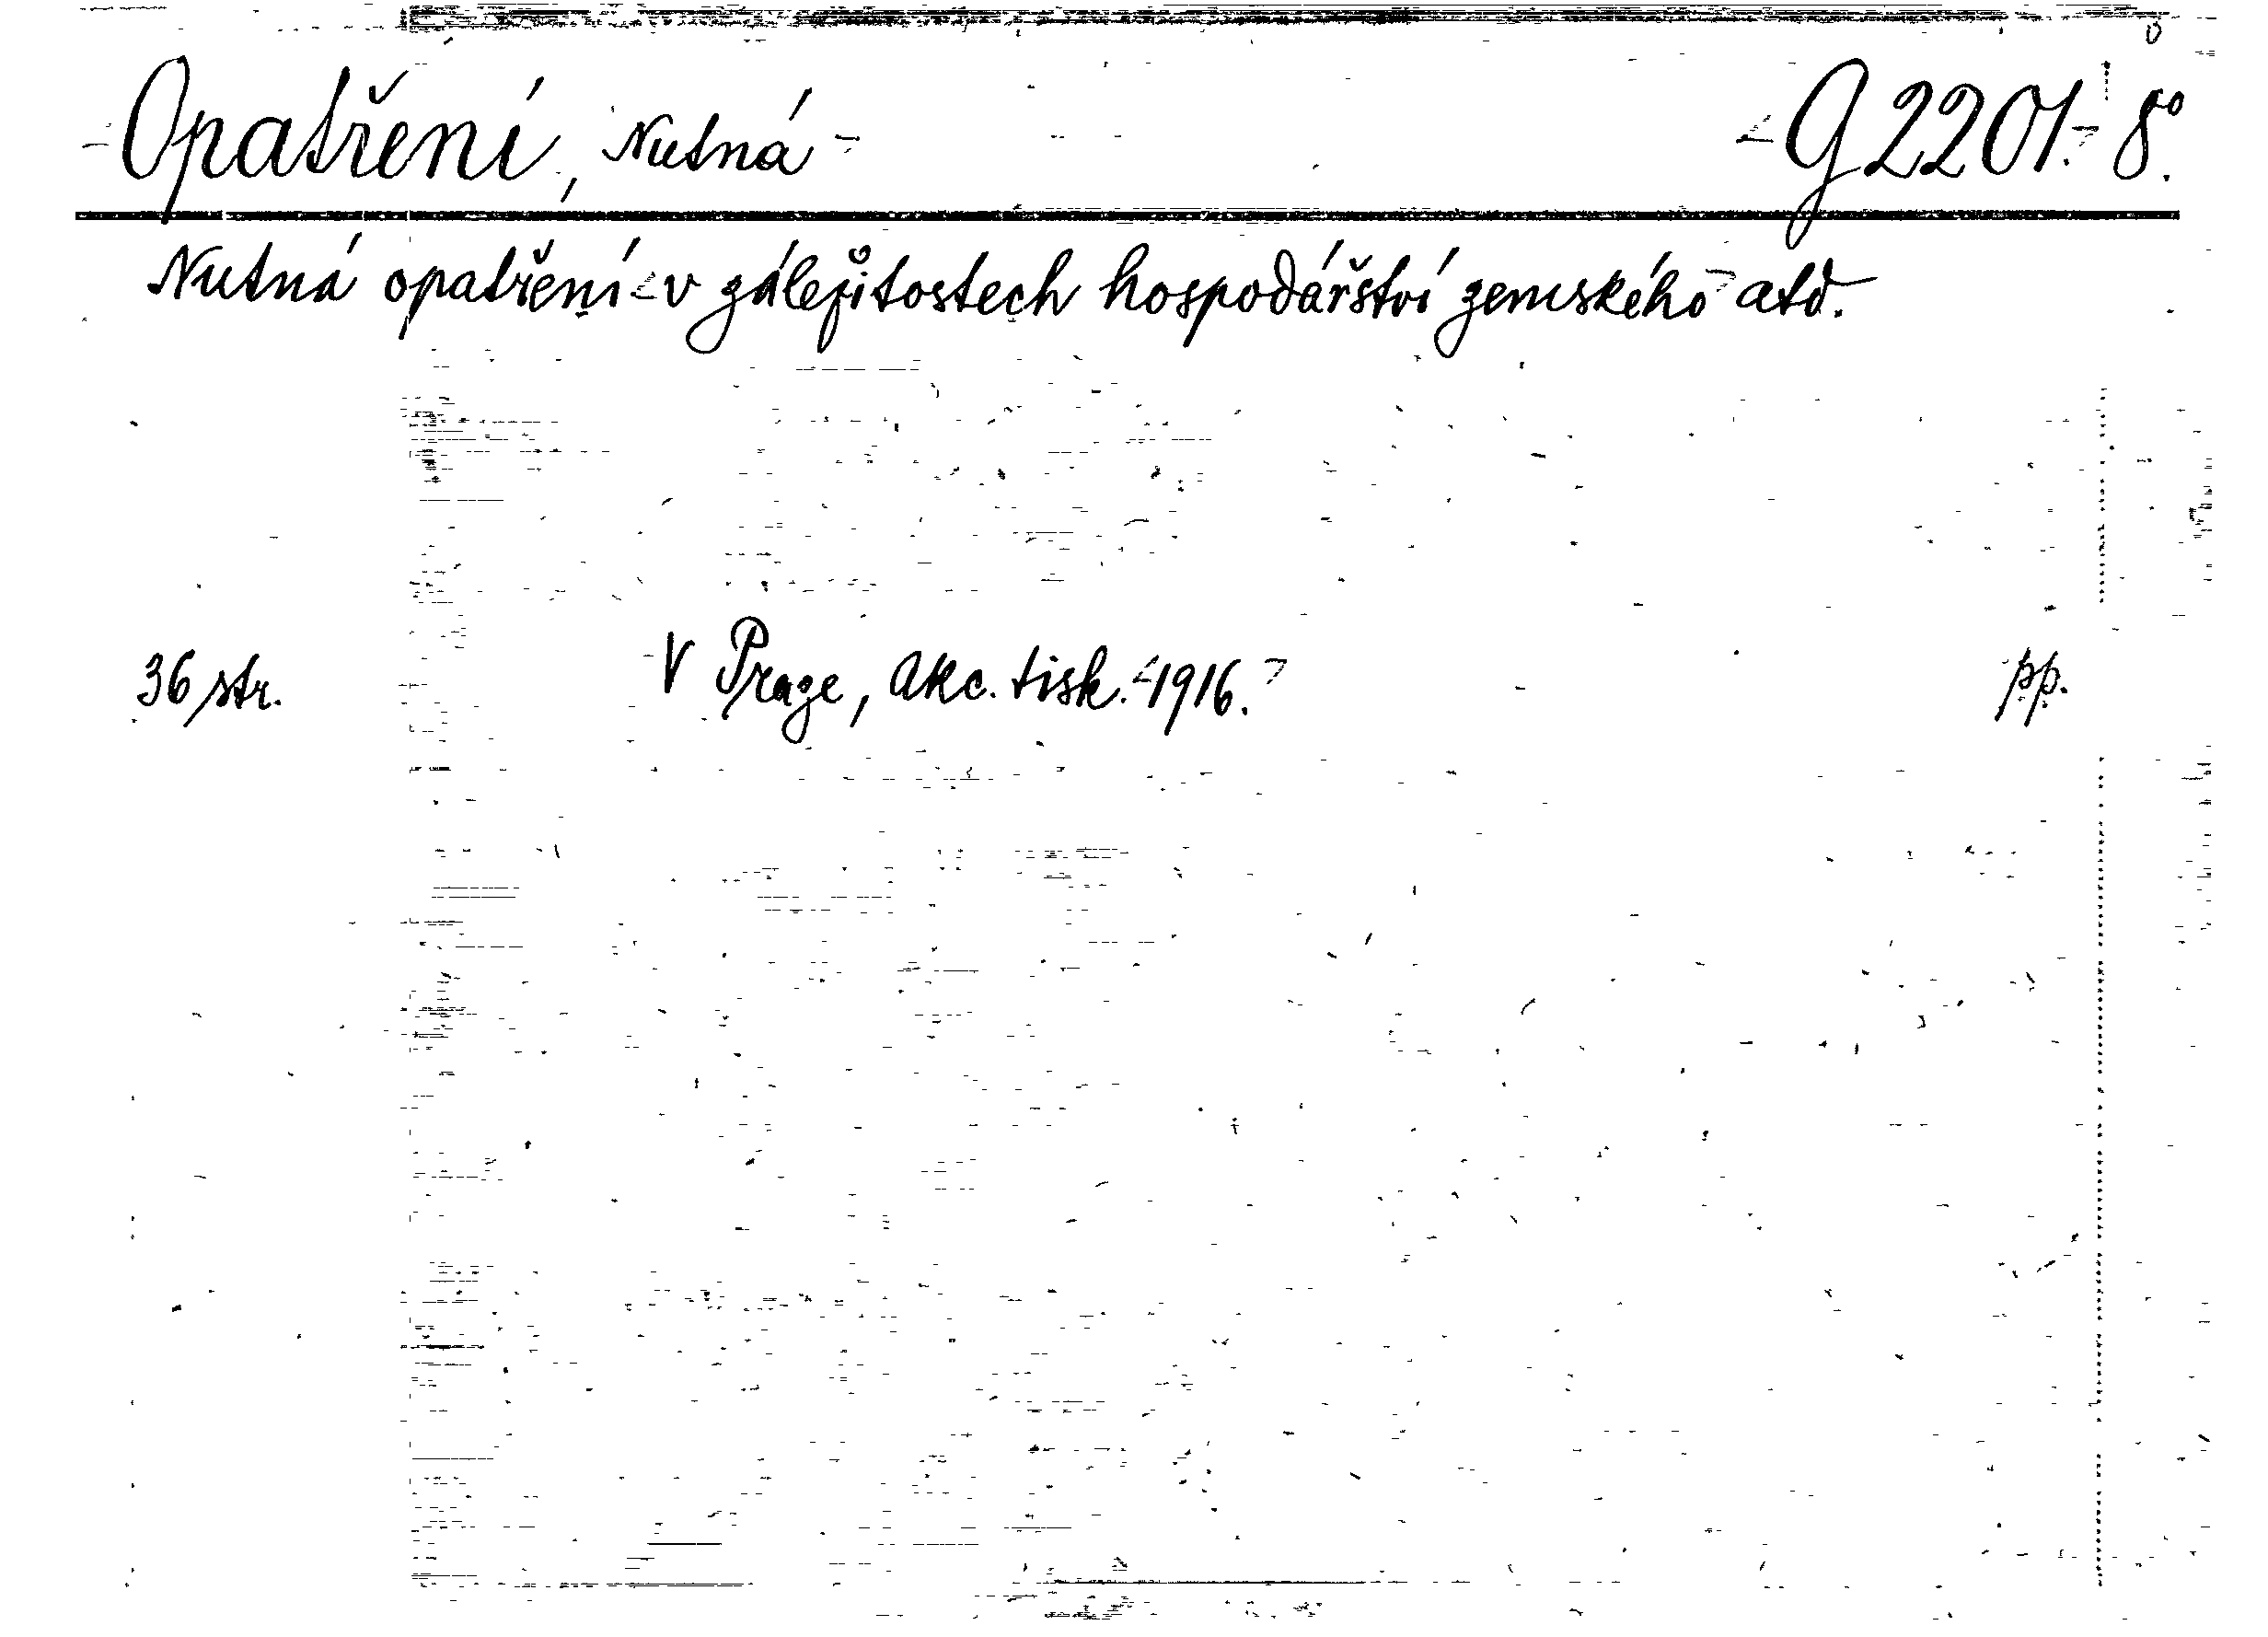 Opatření, Nutná G 2201. 8º.
Nutná opatření v záležitostech hospodářství zemského atd.
36 str. V Praze, Akc. tisk. 1916. pp.